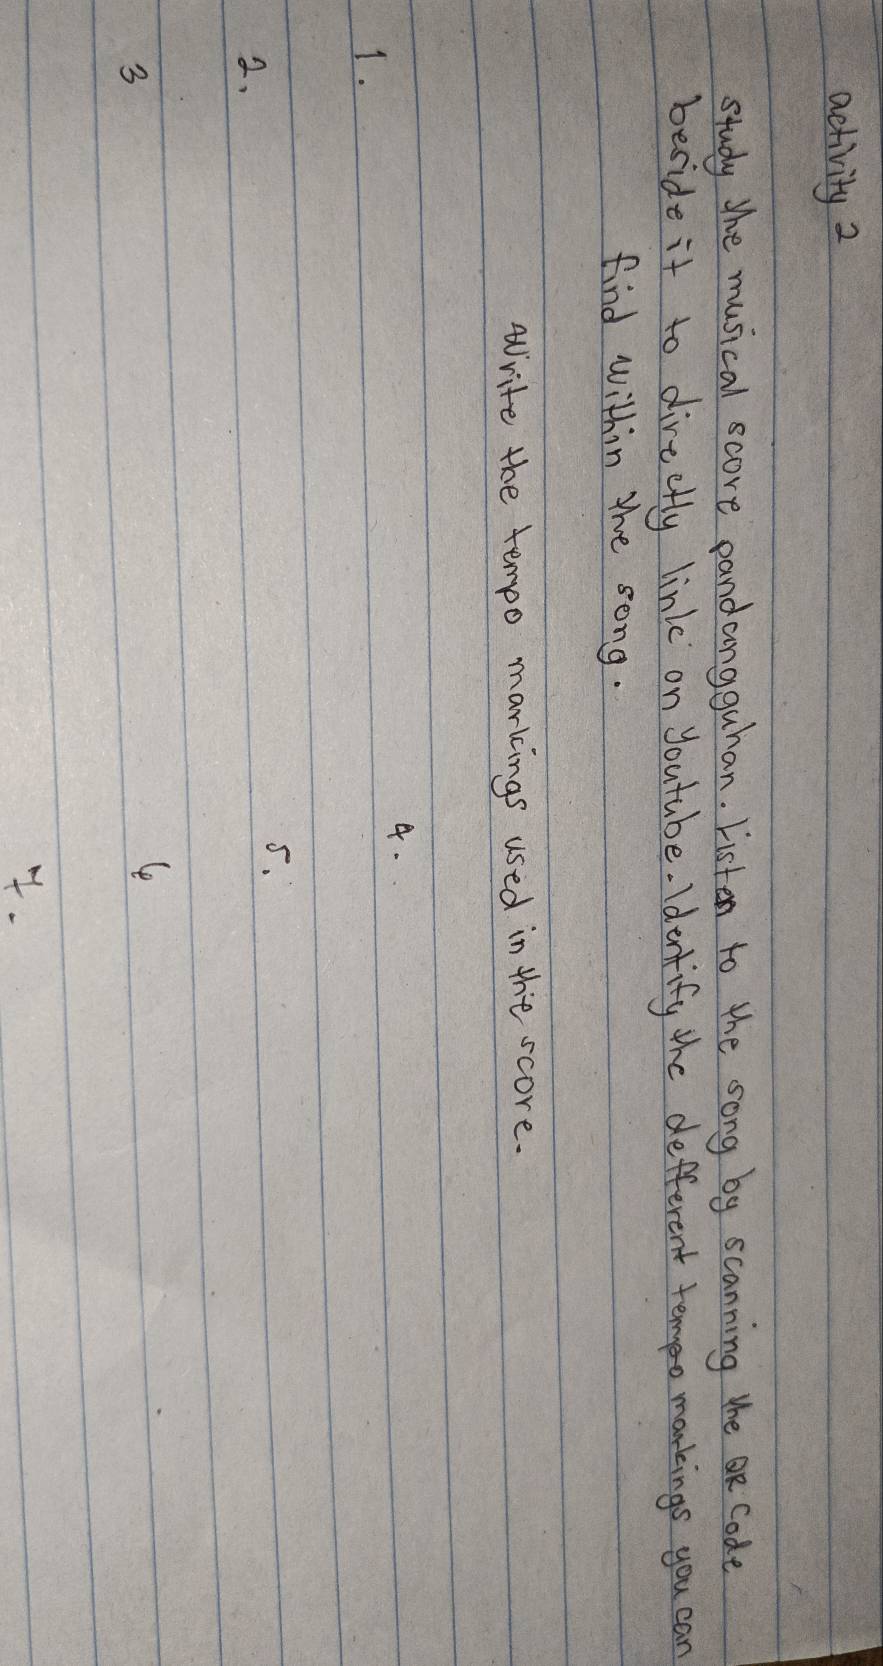 activity 2
study the musical score pandangguhan. Listen to the song by scanning the QR Code
beside it to directly link on youtube. Identify the defferent tempo markings you can
find within the song.
Write the tempo markings used in this score.
1.
2.
3
4.
5.
6
7.